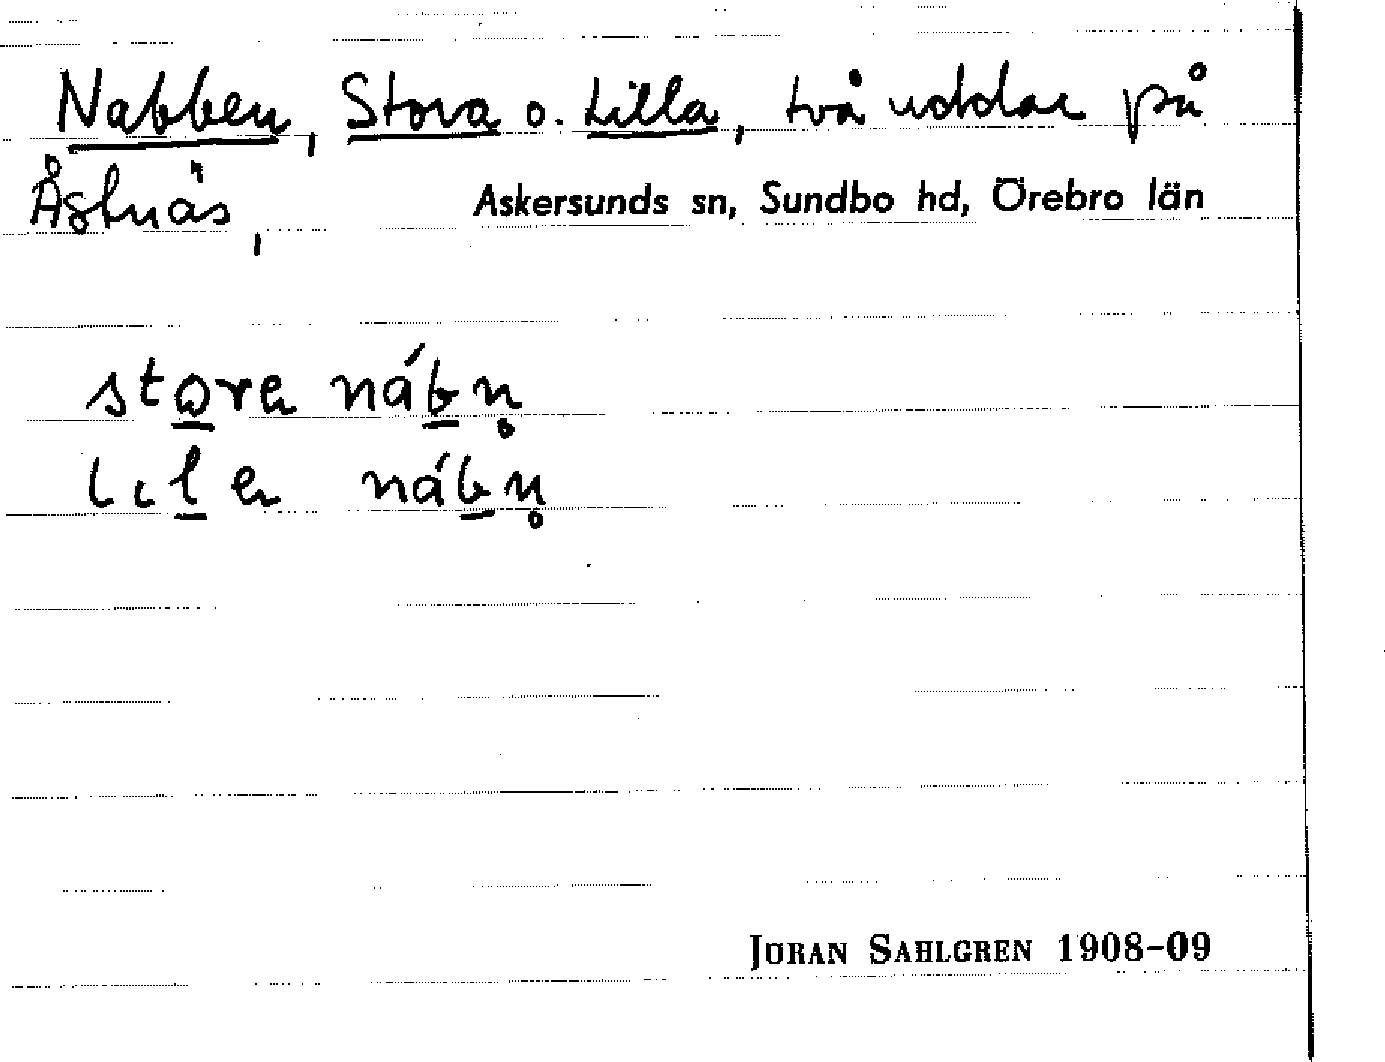 Nabben, Stora o. Lilla, två uddar på
Åstnäs, Askersunds sn, Sundbo hd, Örebro län
store nábn̥
lile nábn̥
JORAN SAHLGREN 1908-09